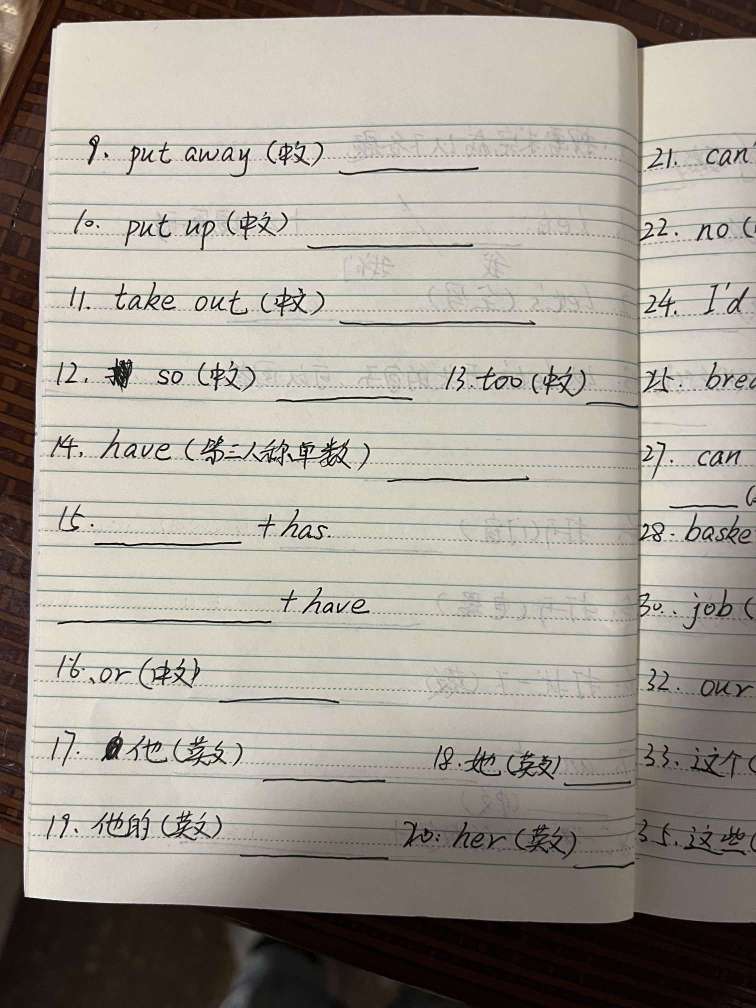 9. put away (中文) ________
10. put up (中文) ________
11. take out (中文) ________
12. so (中文) ________ 13. too (中文) ____
14. have (第三人称单数) ________
15. ________ + has.
________ + have
16. or (中文) ________
17. 他 (英文) ________ 18. 她 (英文) ____
19. 他的 (英文) ________ 20. her (英文) ____
21. can'
22. no (
24. I'd
25. brea
27. can
____ (
28. baske
30. job (
32. our
33. 这个 (
35. 这些 (